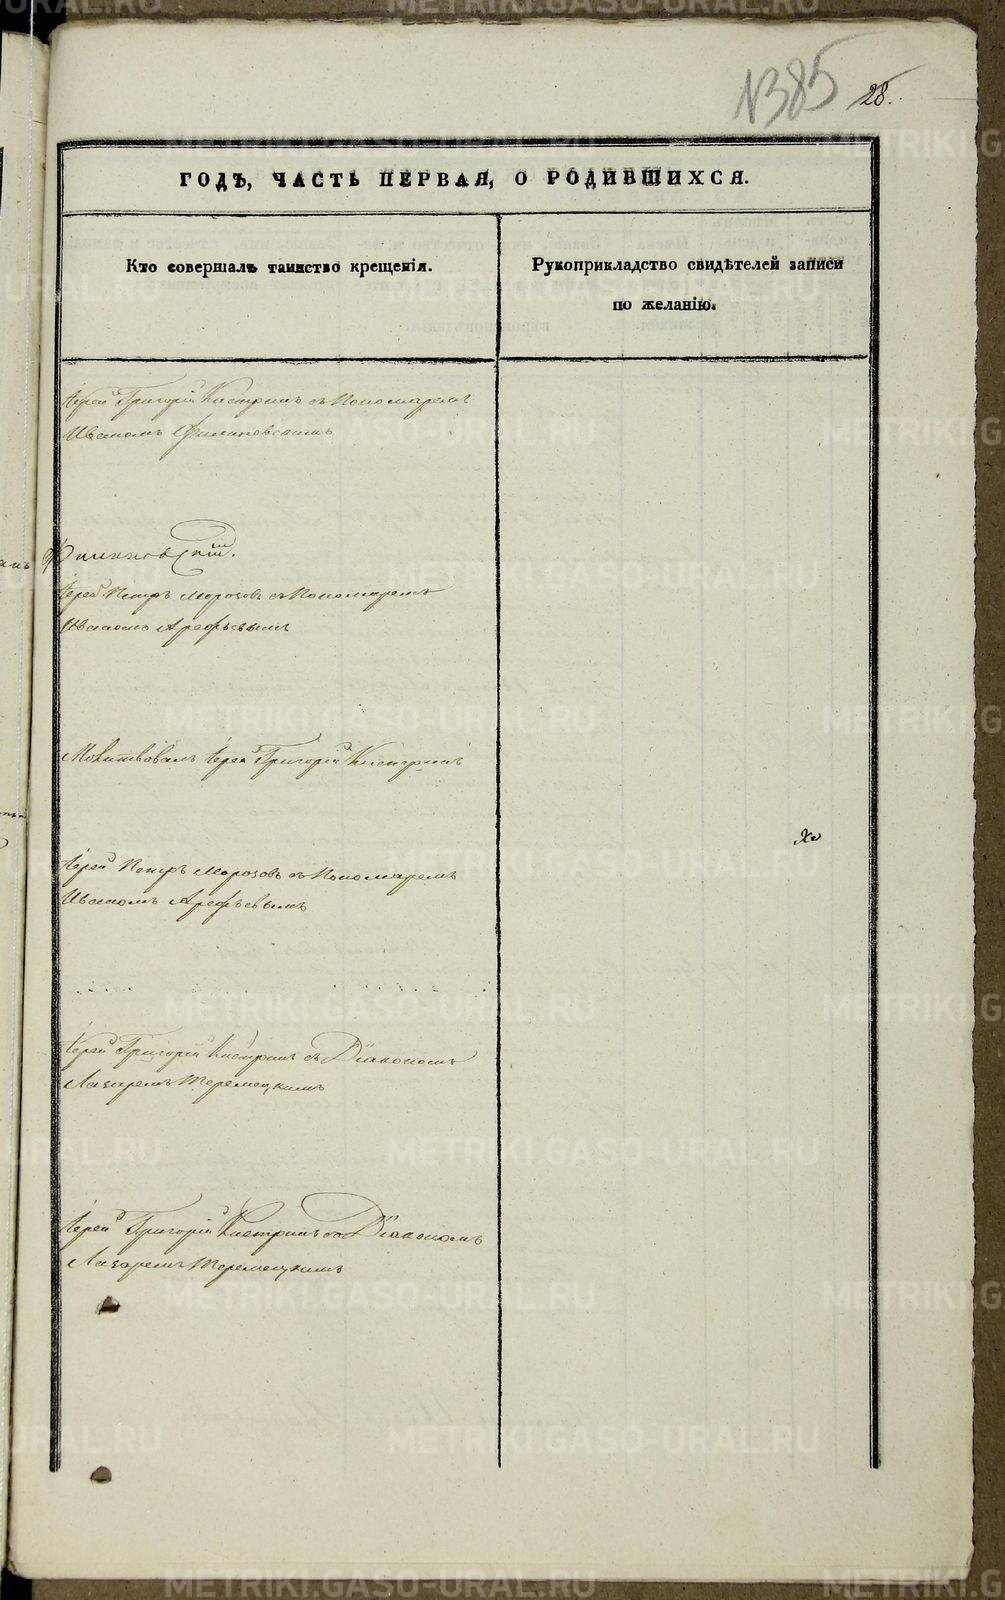 №385 28.
ГОДЪ, ЧАСТЬ ПЕРВАЯ, О РОДИВШИХСЯ.
Кто совершалъ таинство крещенія.
Рукоприкладство свидѣтелей записи
по желанію.
Іерей Григорій Кистринъ съ Пономаремъ
Иваномъ Филиновскимъ
Филиновскій.
Іерей Петръ Морозовъ съ Пономаремъ
Иваномъ Арефьевымъ
Молитвовалъ Іерей Григорій Кистринъ
Іерей Петръ Морозовъ съ Пономаремъ
Иваномъ Арефьевымъ
Іерей Григорій Кистринъ съ Діакономъ
Лазаремъ Теремецкимъ
Іерей Григорій Кистринъ съ Діакономъ
Лазаремъ Теремецкимъ
METRIKI.GASO-URAL.RU